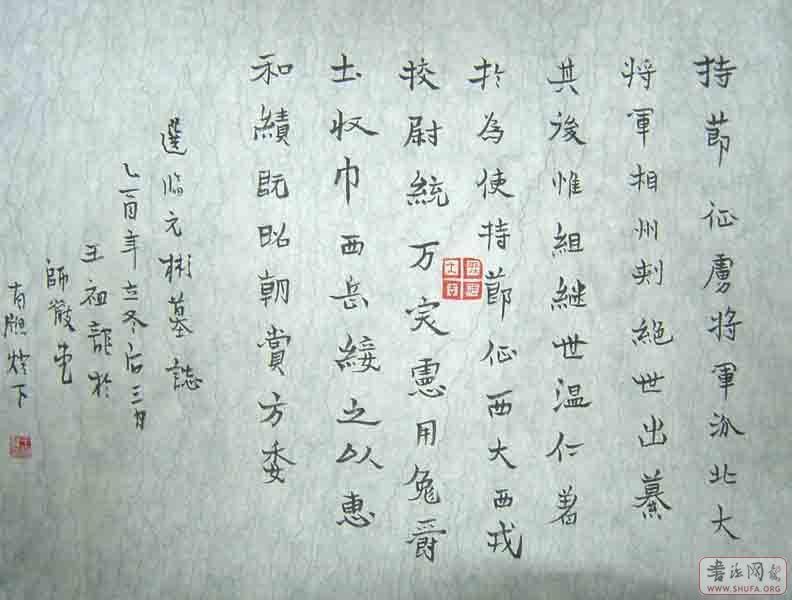 持節征虜將軍汾北大
將軍相州刺絕世出纂
其後惟組継世温仁着
於為使持節征西大西戎
校尉統万突憲用兔爵
土收巾西岳綏之以惠
和績既昭朝賞方委
選臨元彬墓誌
乙酉年立冬后三日
王祖龍於
師嚴堂
燈下
書法网
WWW.SHUFA.ORG